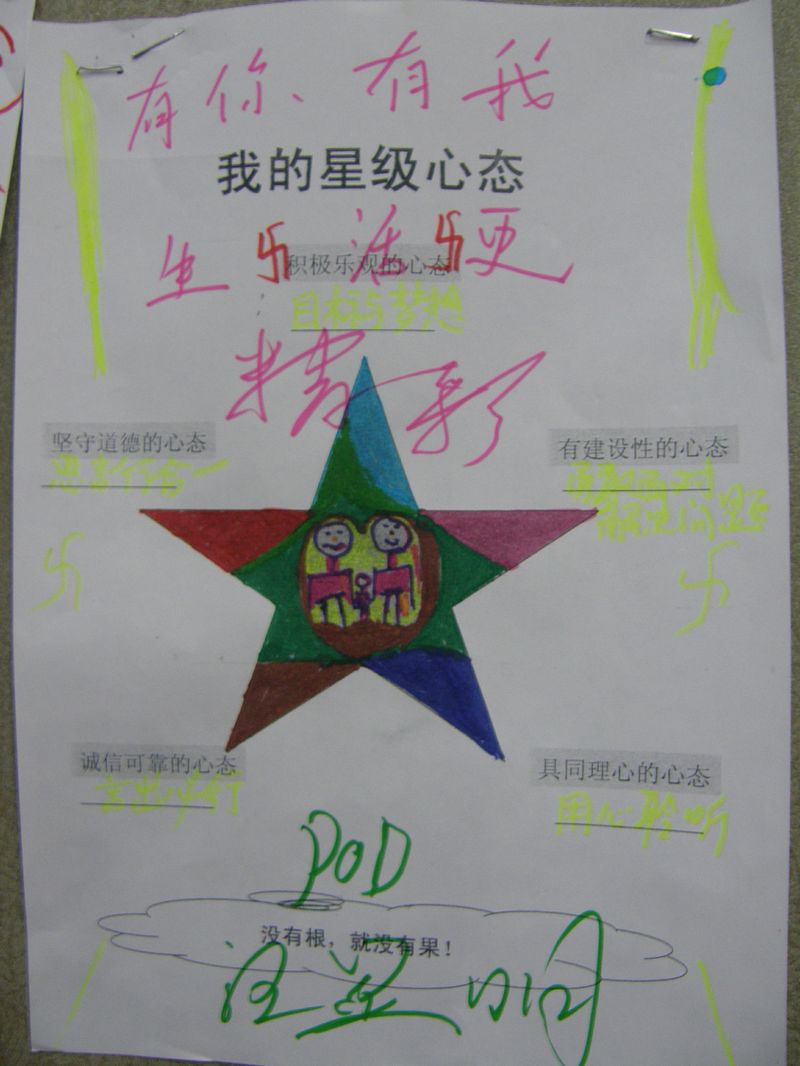 有你、有我
我的星级心态
生活更
积极乐观的心态
目标与梦想
精彩
坚守道德的心态
有建设性的心态
解决问题
诚信可靠的心态
言出必行
具同理心的心态
用心聆听
POD
没有根，就没有果！